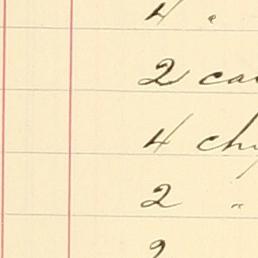 4 "
2 ca
4 ch
2 "
2